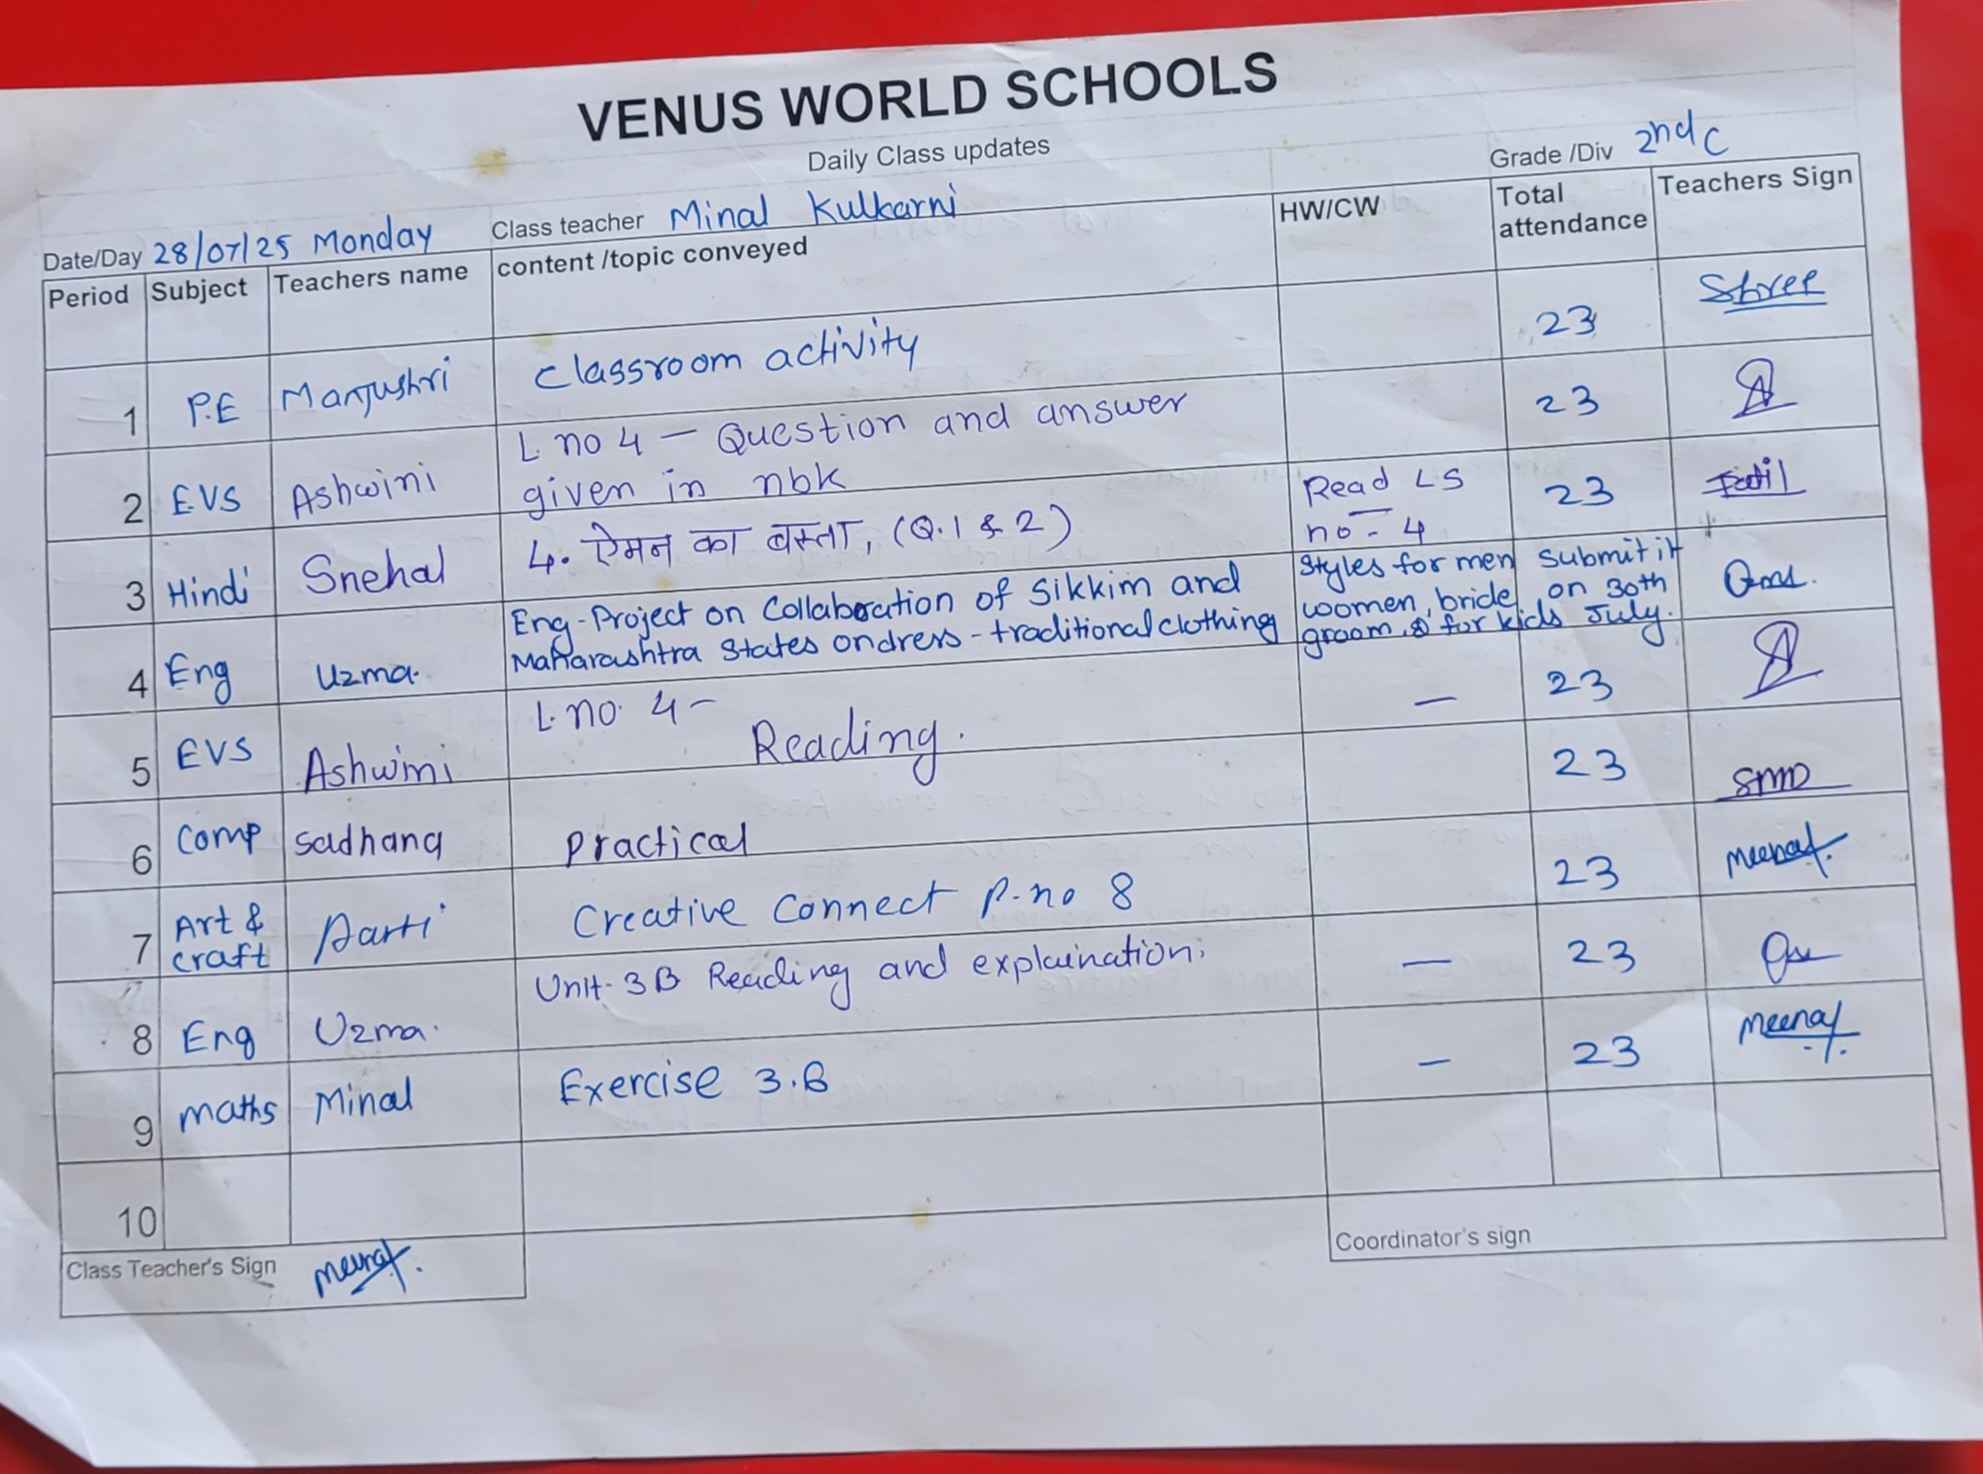 VENUS WORLD SCHOOLS
Daily Class updates
Grade /Div 2nd C
Date/Day 28/07/25 Monday Class teacher Minal Kulkarni
Period Subject Teachers name content /topic conveyed HW/CW Total attendance Teachers Sign
1 P.E Manjushri Classroom activity 23 Shree
2 EVS Ashwini L. no 4 - Question and answer
given in nbk 23
3 Hindi Snehal 4. ऐमन का बस्ता, (Q.1 & 2) Read LS
no - 4 23 Patil
4 Eng Uzma. Eng - Project on Collaboration of Sikkim and
Maharashtra States on dress - traditional clothing
Styles for men submit it
women, bride, on 30th
groom, & for kids July.
5 EVS Ashwini L. no. 4 -
Reading. — 23
6 Comp Sadhana Practical 23
7 Art &
craft Aarti Creative Connect P. no 8 23
8 Eng Uzma. Unit - 3B Reading and explaination. — 23
9 maths Minal Exercise 3.B — 23
10
Class Teacher's Sign
Coordinator's sign